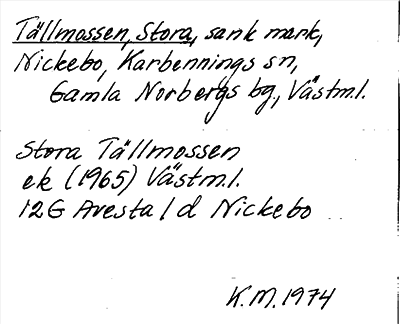 Tällmossen, Stora, sank mark,
Nickebo, Karbennings sn,
Gamla Norbergs bg., Västm.l.
Stora Tällmossen
ek (1965) Västm.l.
12G Avesta 1 d Nickebo
K.M. 1974